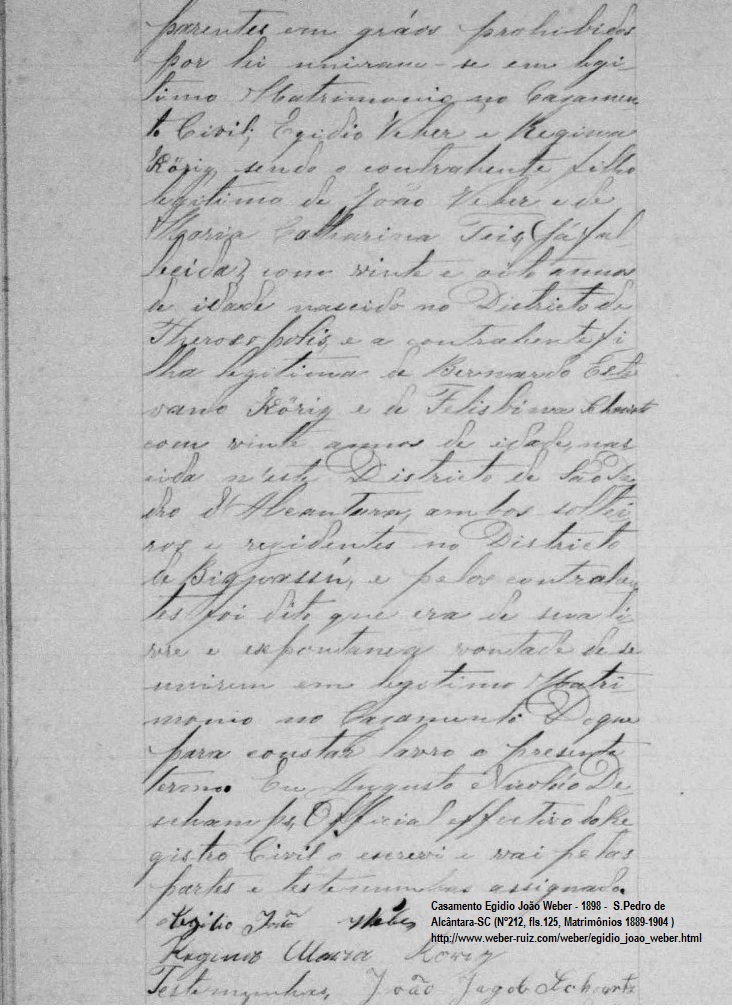 parentes em gráos prohibidos
por lei uniram-se em legi-
timo Matrimonio no Casamen
to Civil; Egidio Veber e Regina
Körig sendo o contrahente filho
legitimo de João Veber e de
Maria Catharina Teis, (já fal-
lecida) com vinte e oito annos
de idade nascido no Districto de
Theresopolis, e a contrahente fi
lha legitima de Bernardo Este
vano Körig e de Felisbina
com vinte annos de idade, nas
cida n'este Districto de São Pe
dro d'Alcantara, ambos soltei
ros e rezidentes no Districto
de Biguassú, e pelos contrahen
tes foi dito que era de sua li
vre e expontanea vontade de se
unirem em legitimo Matri
monio no Casamento Do que
para constar lavro o presente
termo. Eu Augusto Nicoláo De
schamps, Official effectivo do Re
gistro Civil o escrevi e vai pelas
partes e testemunhas assignado.
Egidio João Weber
Regina Maria Körig
Testemunhas, João Jacob Schwartz
Casamento Egidio João Weber - 1898 - S.Pedro de
Alcântara-SC (Nº212, fls.125, Matrimônios 1889-1904 )
http://www.weber-ruiz.com/weber/egidio_joao_weber.html